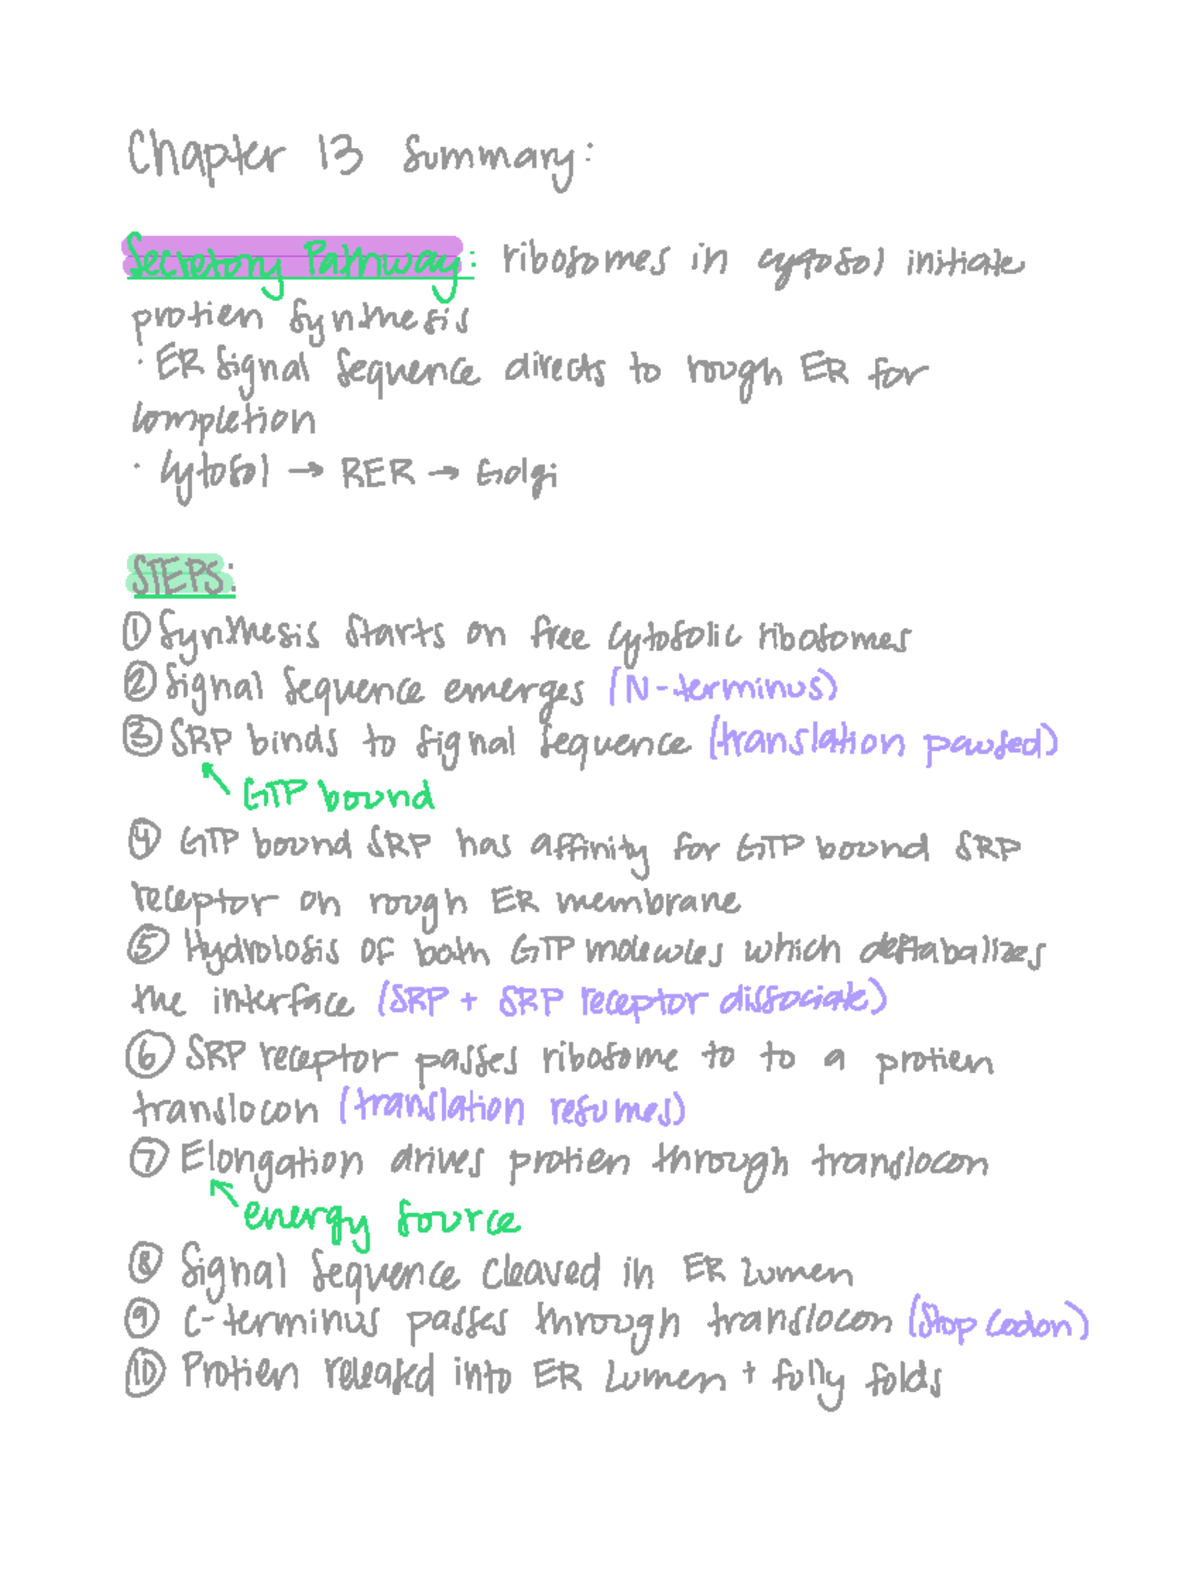 Chapter 13 Summary:
Secretory Pathway: ribosomes in cytosol initiate
protien synthesis
· ER signal sequence directs to rough ER for
completion
· Cytosol → RER → Golgi
STEPS:
① Synthesis starts on free cytosolic ribosomes
② Signal sequence emerges (N-terminus)
③ SRP binds to signal sequence (translation paused)
GTP bound
④ GTP bound SRP has affinity for GTP bound SRP
receptor on rough ER membrane
⑤ Hydrolosis of both GTP molecules which destabalizes
the interface (SRP + SRP receptor dissociate)
⑥ SRP receptor passes ribosome to to a protien
translocon (translation resumes)
⑦ Elongation drives protien through translocon
energy source
⑧ Signal sequence cleaved in ER lumen
⑨ C-terminus passes through translocon (stop codon)
⑩ Protien releasd into ER lumen + fully folds